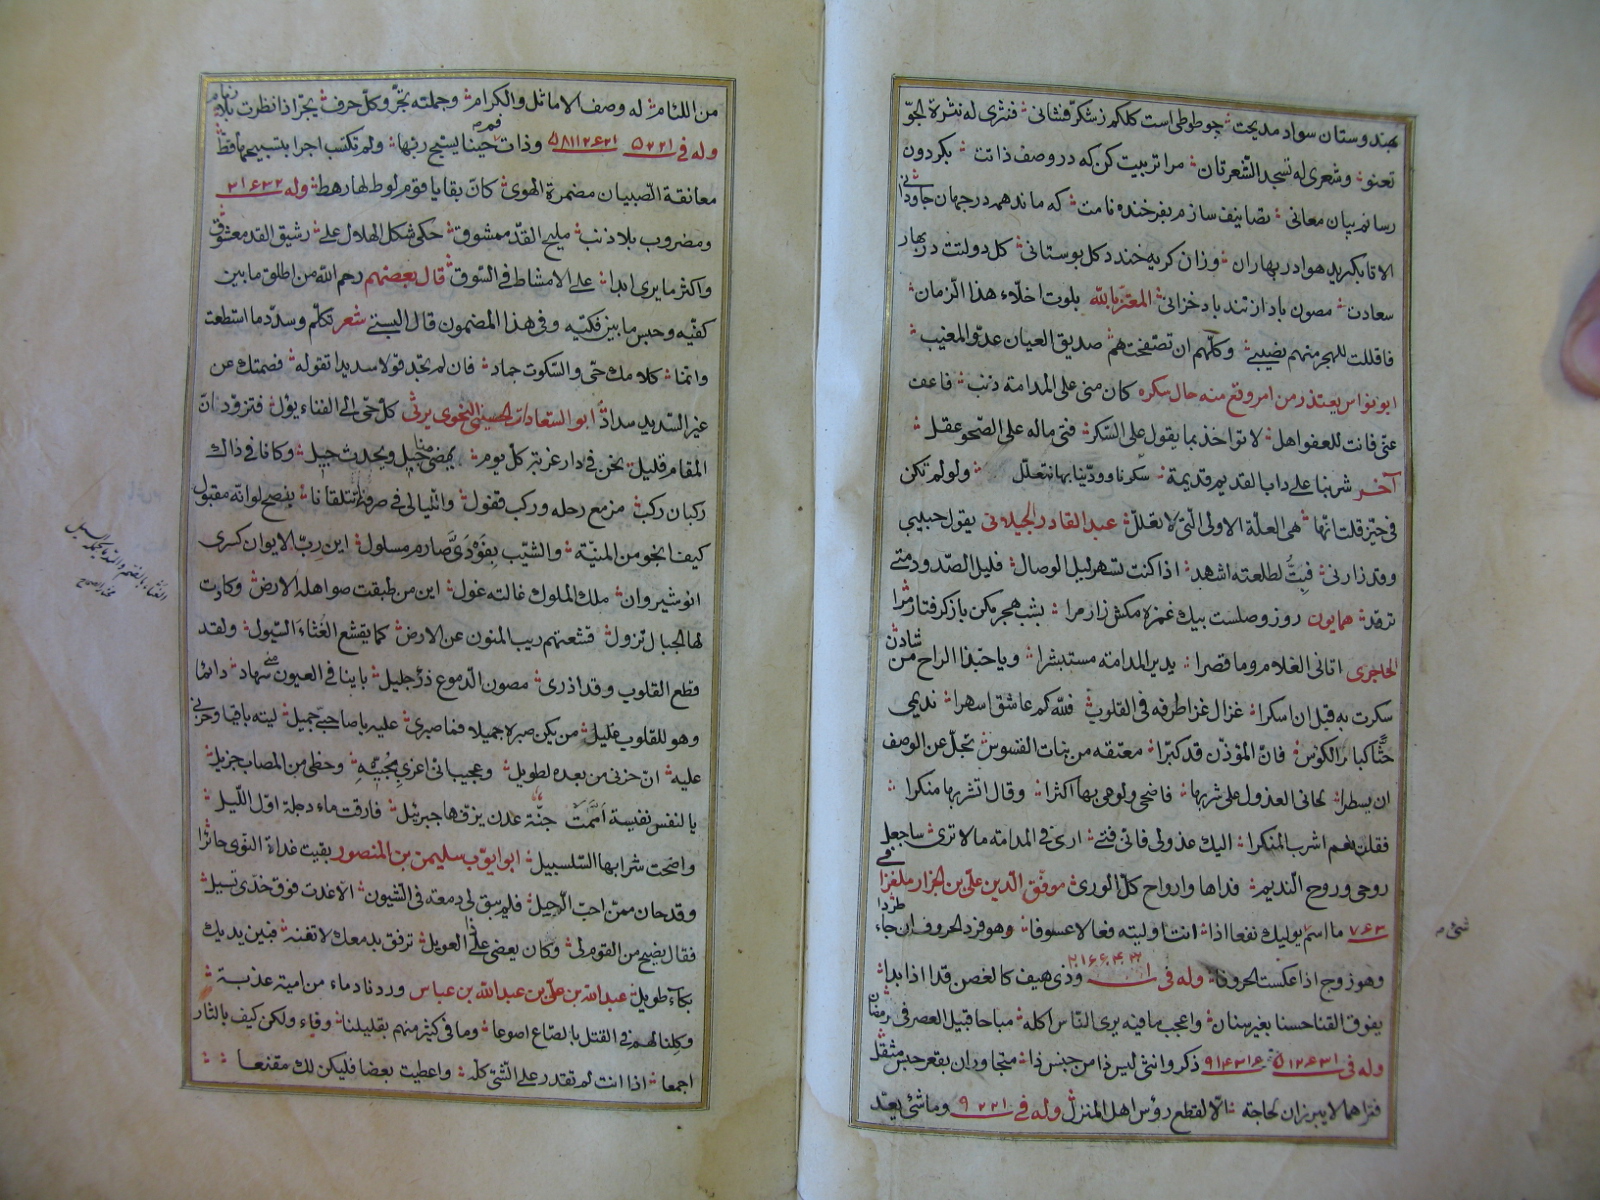 بهندوستان سواد مدیحت چو طوطی است کلکم ز شکر فشانی فنثری له نثرة الجوّ
تعنو وشعری له تسجد الشّعریان مرا تربیت کن که در وصف ذاتت بکردون
رسانم بیان معانی تصانیف سازم بفرخنده نامت که ماند همه در جهان جاودانی
الا تا بکرید هوا در بهاران وزان کریه خندد کل بوستانی کل دولتت در بهار
سعادت مصون باد از تند باد خزانی المعتز بالله بلوت اخلّاء هذا الزمان
فاقللت للهجر منهم نصیبی وکلهم ان تصفحت هم صدیق العیان عدوّ المغیب
ابونواس یعتذر من امر وقع منه حال سکره کان منی علی المدامة ذنب فاعف
عنّی فانت للعفو اهل لا تواخذ بما یقول علی السّکر فتی ماله علی الصّحو عقل
آخر شربنا علی داب القدیم قدیمة سکرنا وودّینا بها نتعلّل ولو لم تکن
فی حیّز قلت انّها هی العلّة الاولی الّتی لا تعلّل عبد القادر الجیلانی یقول حبیبی
وقد زارنی فبتُّ لطلعته اشهد اذا کنت تسهر لیل الوصال فلیل الصّدود متی
ترقد همایون روز وصلست بیک غمزه مکش زار مرا بشب هجر مکن باز کرفتار مرا
الحاجری اتانی الغلام وما قصرا یدیر المدامة مستبشرا ویا حبّذا الراح من شادن
سکرت به قبل ان اسکرا غزال غزا طرفه فی القلوب فلله کم عاشق اسهرا ندیمی
حثّا کبار الکوس فانّ المؤذّن قد کبّرا معتقه من بنات القسوس تجلّ عن الوصف
ان یسطرا لحانی العذول علی شربها فاضحی ولوعی بها اکثرا وقال اتشربها منکرا
فقلت نعم اشرب المنکرا الیک عذولی فانّی فتی اری فی المدامه ما لا تری ساجعل
روحی وروح الندیم فداها وارواح کلّ الوری موفق الدین علی بن الجزار ملغزا فی
٧۶٣ ما اسم یولیک نفعا اذا انت اولیته فعالا عسوفا وهو فرد الحروف ان جاء طردا
وهو زوج اذا عکست الحروفا وله فی وذی هیف کالغصن قدّا اذا بدا
یفوق القنا حسنا بغیر سنان واعجب ما فیه یری النّاس اکله مباحا قبیل العصر فی رمضان
وله فی ذکر وانثی لیس ذا من جنس ذا متجاوران بقعر حبس مثقل
فتراهما لا یبرزان لحاجة الّا لقطع رؤس اهل المنزل وله فی وما شئ یعدّ
شئ
من اللئام له وصف الاماثل والکرام وجملته تجرّ وکلّ حرف یجرّ اذا نظرت بلا زمام
وله فی وذات حینا یسبّح ربّها ولم تکتسب اجرا بتسبیحها قط
معانقة الصّبیان مضمرة الهوی کانّ بقایا قوم لوط لها رهط وله
ومضروب بلا ذنب ملیح القدّ ممشوق حکی شکل الهلال علی رشیق القد معشوق
واکثر ما یری ابدا علی الامشاط فی السّوق قال بعضهم رحم الله من اطلق ما بین
کفّیه وحبس ما بین فکّیه وفی هذا المضمون قال البستی شعر تکلّم وسدّد ما استطعت
وانّما کلامک حیّ والسّکوت جماد فان لم تجد قولا سدیدا تقوله فصمتک عن
غیر السّدید سداد ابو السّعادات الحسینی النحوی یرثی کلّ حیّ الی الفناء یؤل فتزود انّ
المقام قلیل نحن فی دار غربة کلّ یوم یمضی منا جیل ویحدث جیل وکانا فی ذاک
رکبان رکب مزمع رحله ورکب قفول واللیالی فی صرفها تتلقانا بفصح لو انّه مقبول
کیف انجو من المنیّة والشّیب بفودیَّ صارم مسلول این ربّ الایوان کسری
انوشیروان ملک الملوک غالته غول این من طبقت صواهله الارض وکادت
لها الجبال تزول قشعتهم ریب المنون عن الارض کما یقشع الغثاءَ السّیول ولقد
قطع القلوب وقد اذری مصون الدّموع ذرّ جلیل با بنا فی العیون منی سهاد دائما
وهو للقلوب غلیل من یکن صبره جمیلا فما صبری علیه یا صاحبی جمیل لیته باقیا وحزنی
علیه انّ حزنی من بعده لطویل وعجیب انی اعزی محبّیه وحظی من المصاب جزیل
یا لنفس نفیسة امّمت جنّة عدن یزفها جبرئیل فارقت ماء دجلة اوّل اللّیل
واضحت شرابها السّلسبیل ابو ایوّب سلیمن بن المنصور بقیت غداة النوی حائرا
وقد حان ممّن احبّ الرّحیل فلم یبق لی دمعة فی الشّیون الّا غدت فوق خدّی تسیل
فقال نصیح من القوم لی وکان یعضی علیّ العویل ترفق بدمعک لا تفنه فبین یدیک
بکاء طویل عبد الله بن علی بن عبد الله بن عباس وردنا دماء من امیة عذبة
وکلنا لهم فی القتل بالصّاع اصوعا وما فی کثیر منهم بقلیلنا وفاء ولکن کیف بالثار
اجمعا اذا انت لم تقدر علی الشّئ کلّه واعطیت بعضا فلیکن لک مقنعا